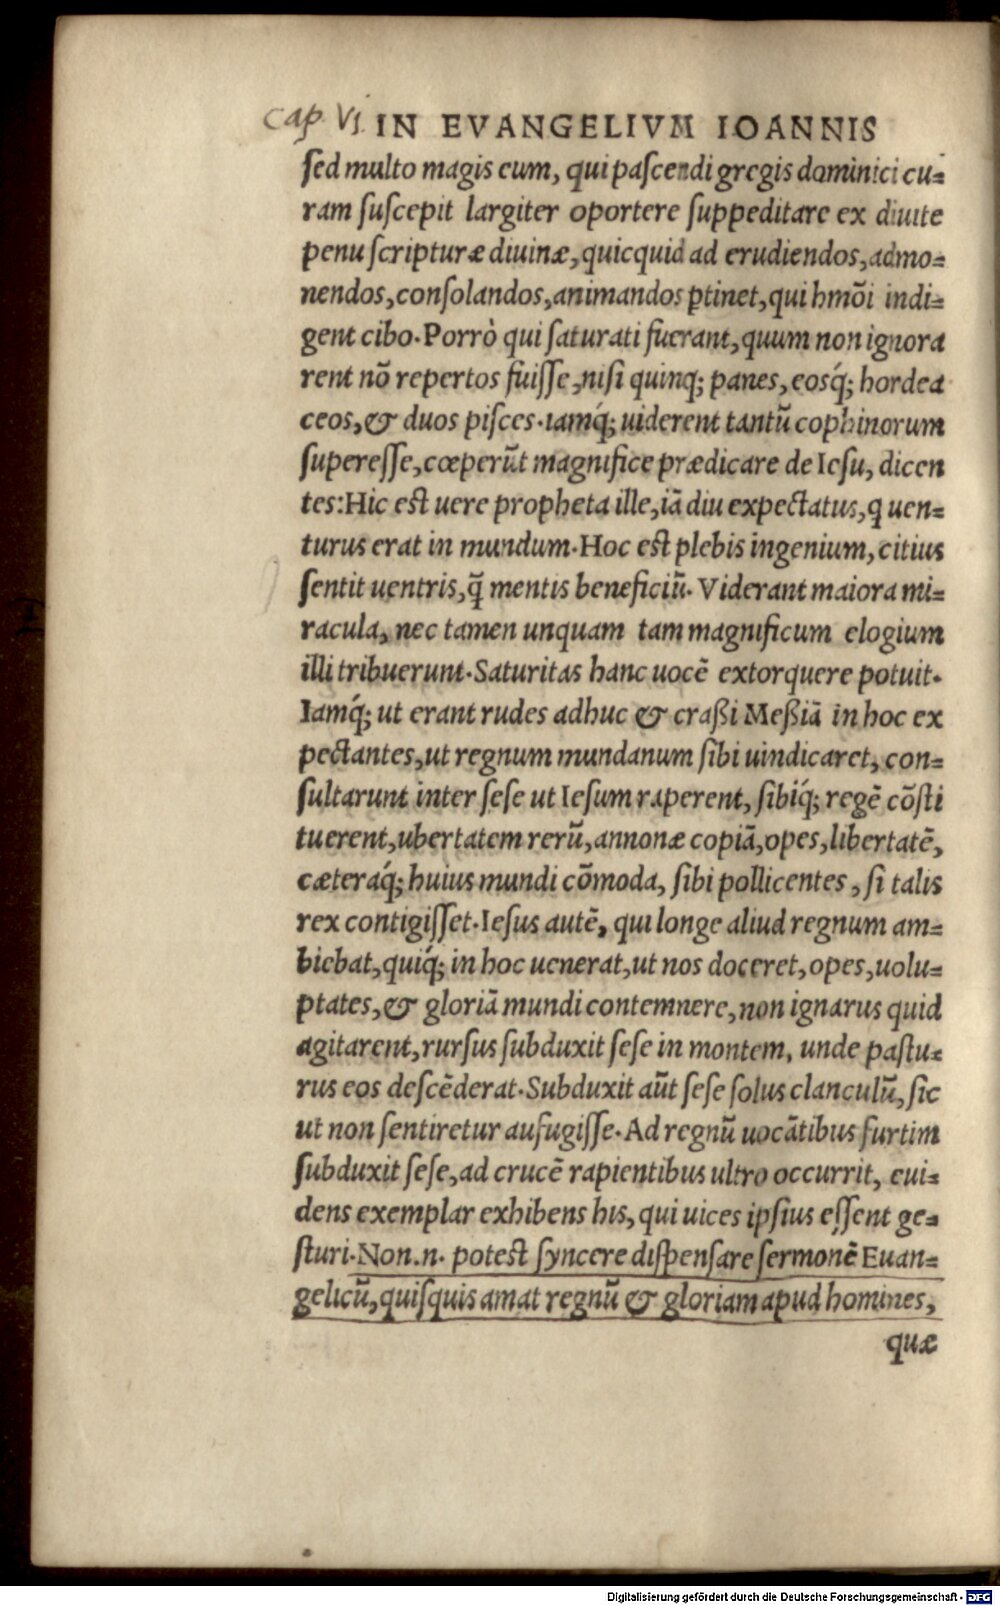 Cap. VI. IN EVANGELIVM IOANNIS
ſed multo magis eum, qui paſcendi gregis dominici cu⸗
ram ſuſcepit largiter oportere ſuppeditare ex diuite
penu ſcripturæ diuinæ, quicquid ad erudiendos, admo⸗
nendos, conſolandos, animandos ꝑtinet, qui hmõi indi⸗
gent cibo. Porrò qui ſaturati fuerant, quum non ignora
rent nõ repertos fuiſſe, niſi quinq; panes, eosq́; hordea
ceos, & duos piſces. iamq́; uiderent tantũ cophinorum
ſupereſſe, cœperũt magnifice prædicare de Ieſu, dicen
tes: Hic eſt uere propheta ille, iã diu expectatus, q uen⸗
turus erat in mundum. Hoc eſt plebis ingenium, citius
ſentit uentris, q̃ mentis beneficiũ. Viderant maiora mi⸗
racula, nec tamen unquam tam magnificum elogium
illi tribuerunt. Saturitas hanc uocẽ extorquere potuit.
Iamq́; ut erant rudes adhuc & craßi Meßiã in hoc ex
pectantes, ut regnum mundanum ſibi uindicaret, con⸗
ſultarunt inter ſeſe ut Ieſum raperent, ſibiq́; regẽ cõſti
tuerent, ubertatem rerũ, annonæ copiã, opes, libertatẽ,
cæteraq́; huius mundi cõmoda, ſibi pollicentes, ſi talis
rex contigiſſet. Ieſus autẽ, qui longe aliud regnum am⸗
biebat, quiq́; in hoc uenerat, ut nos doceret, opes, uolu⸗
ptates, & gloriã mundi contemnere, non ignarus quid
agitarent, rurſus ſubduxit ſeſe in montem, unde paſtu⸗
rus eos deſcẽderat. Subduxit aũt ſeſe ſolus clanculũ, ſic
ut non ſentiretur aufugiſſe. Ad regnũ uocãtibus furtim
ſubduxit ſeſe, ad crucẽ rapientibus ultro occurrit, eui⸗
dens exemplar exhibens his, qui uices ipſius eſſent ge⸗
ſturi. Non .n. poteſt ſyncere diſpenſare ſermonẽ Euan⸗
gelicũ, quiſquis amat regnũ & gloriam apud homines,
quæ
Digitalisierung gefördert durch die Deutsche Forschungsgemeinschaft - DFG